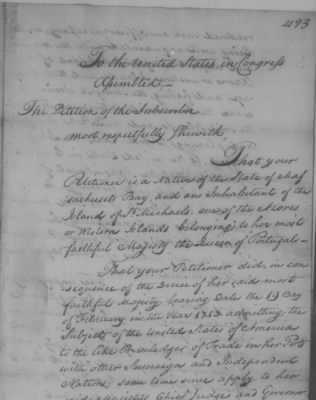 493
To the United States in Congress
Assembled.—
The Petition of the Subscriber
most respectfully Sheweth
That your
Petitioner is a Native of the State of Massachusets Bay, and an Inhabitant of the
Island of St. Michaels, one of the Azores
or Western Islands belonging to her most
faithful Majesty the Queen of Portugal—
That your Petitioner did, in con
sequence of the Decree of her said most
faithful Majesty bearing Date the 19 Day
of February in the Year 1783 admitting the
Subjects of the United States of America
to the like Priviledges of Trade in her Ports
with other Sovereign and Independent
Nations, some time since apply to her
Chief Judge and Governor